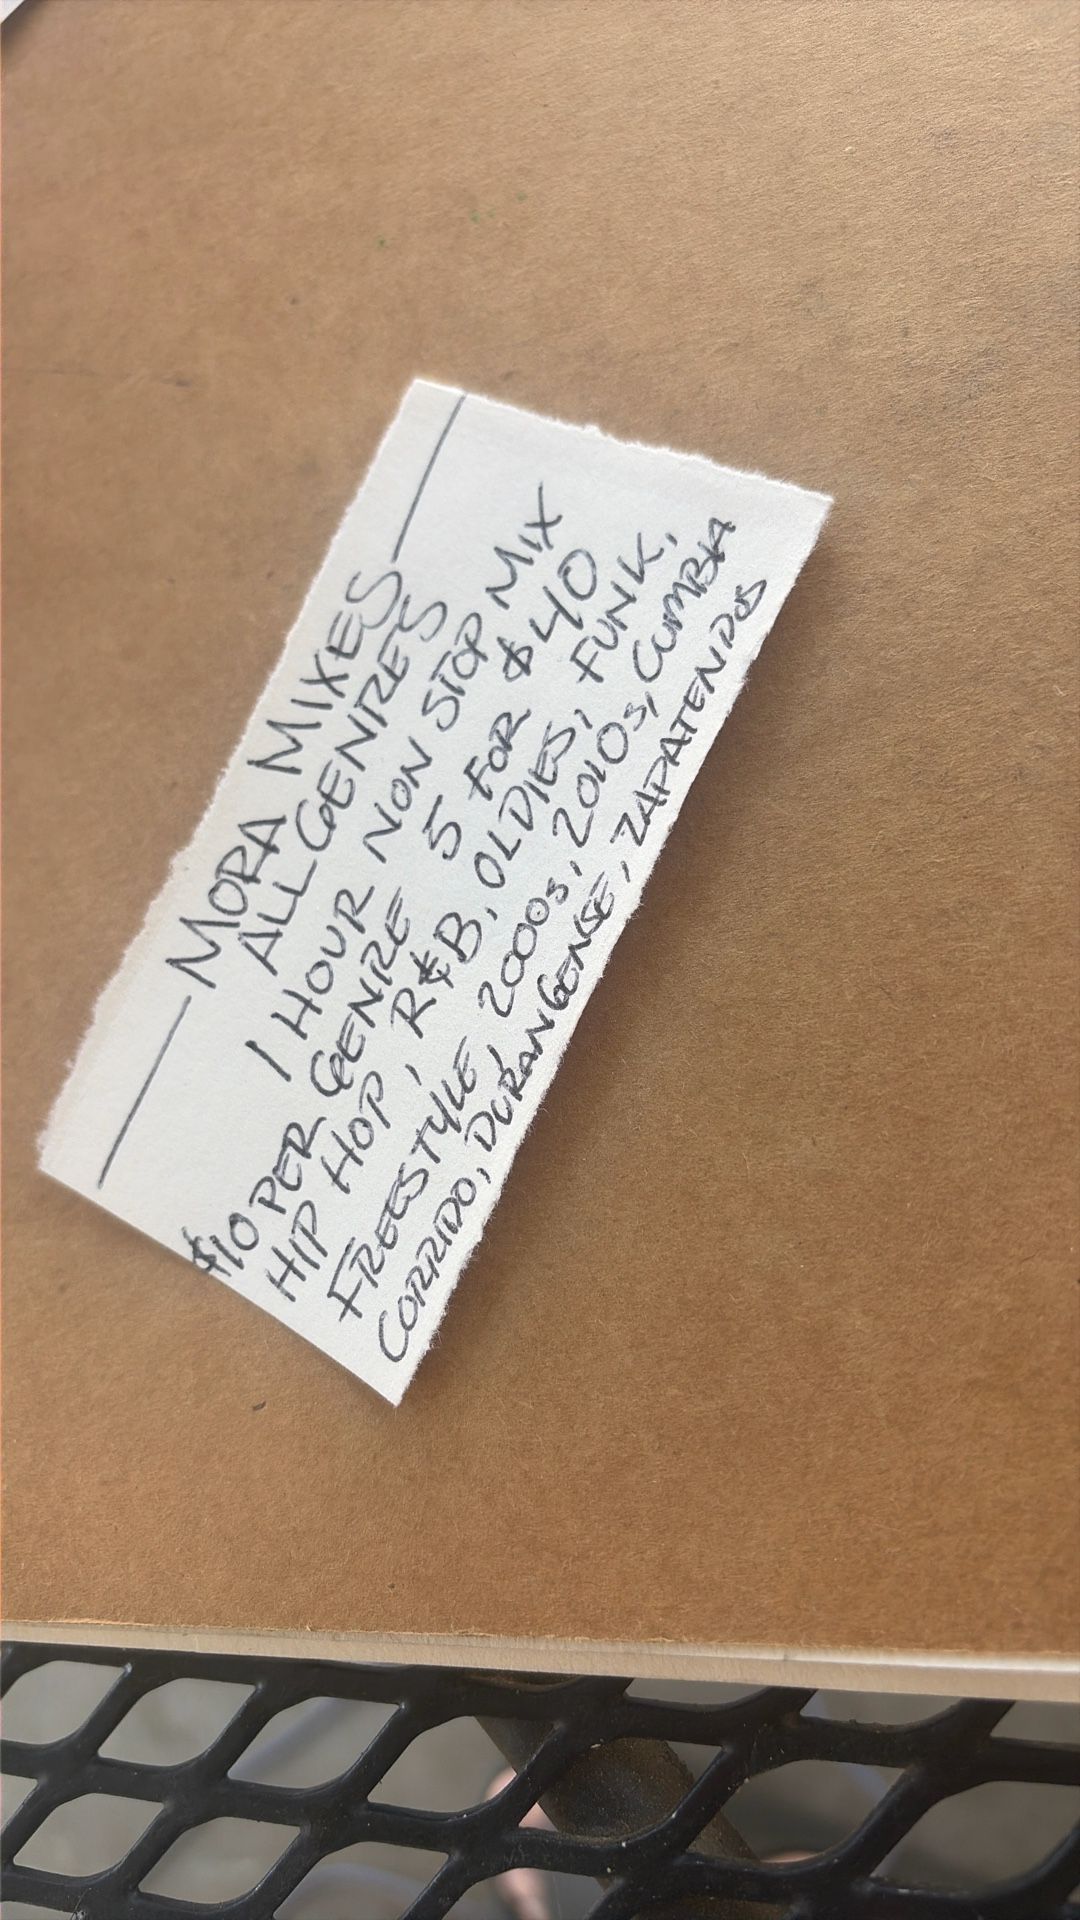 MORA MIXES
ALL GENRES
1 HOUR NON STOP MIX
$10 PER GENRE 5 FOR $40
HIP HOP, R&B, OLDIES, FUNK,
FREESTYLE, 2000s, 2010s, CUMBIA
CORRIDO, DURANGENSE, ZAPATENDOS